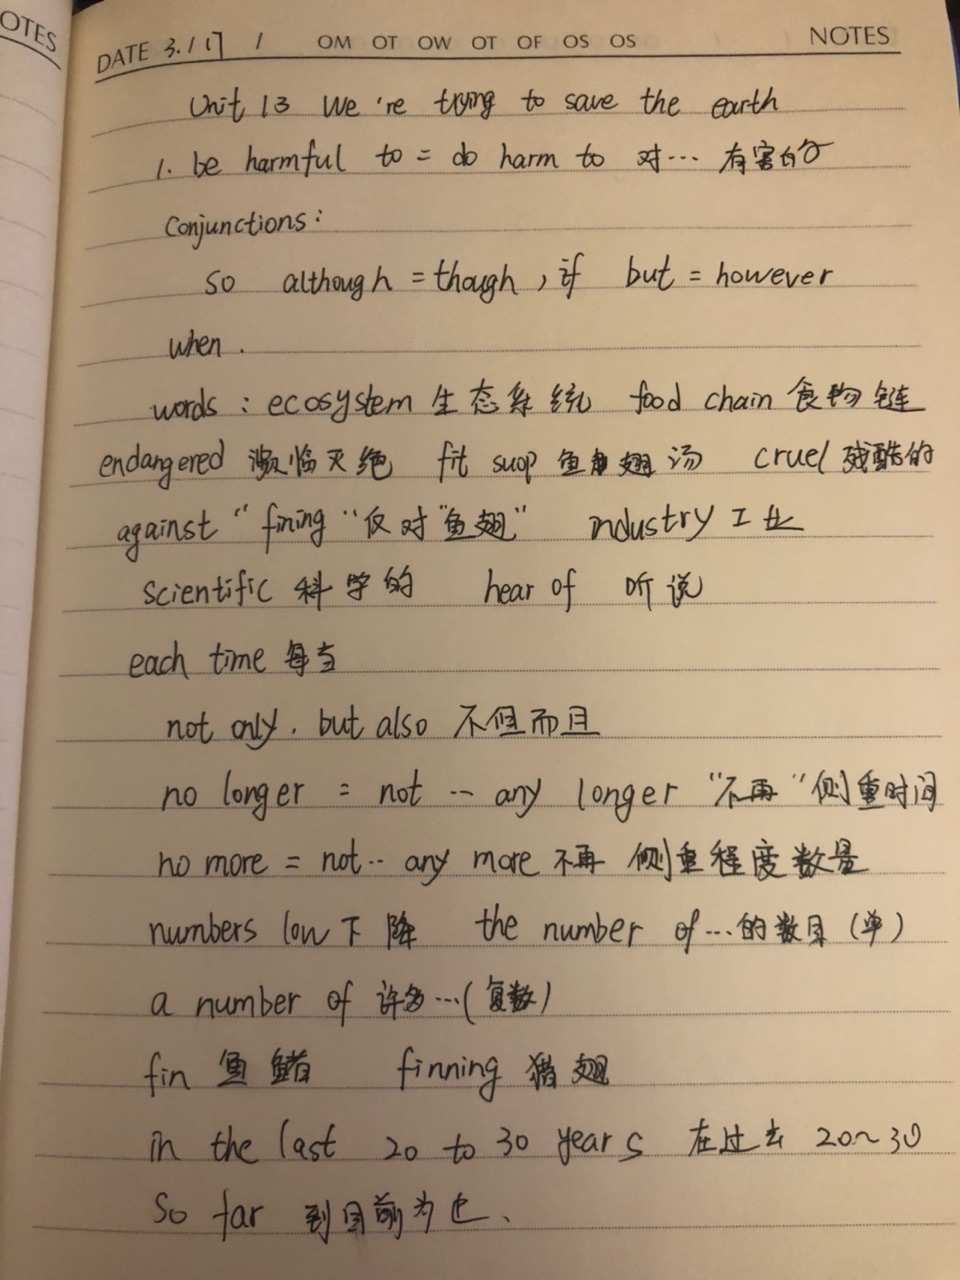 OTES
DATE 3.17 / OM OT OW OT OF OS OS NOTES
Unit 13 We're trying to save the earth
1. be harmful to = do harm to 对… 有害的
Conjunctions:
so although = though, if but = however
when.
words: ecosystem 生态系统 food chain 食物链
endangered 濒临灭绝 fit suop 鱼翅汤 cruel 残酷的
against "fining" 反对"鱼翅" industry 工业
scientific 科学的 hear of 听说
each time 每当
not only. but also 不但而且
no longer = not … any longer "不再"侧重时间
no more = not … any more 不再 侧重程度数量
numbers low 下降 the number of …的数目 (单)
a number of 许多…(复数)
fin 鱼鳍 finning 猎翅
in the last 20 to 30 years 在过去 20~30
So far 到目前为止、